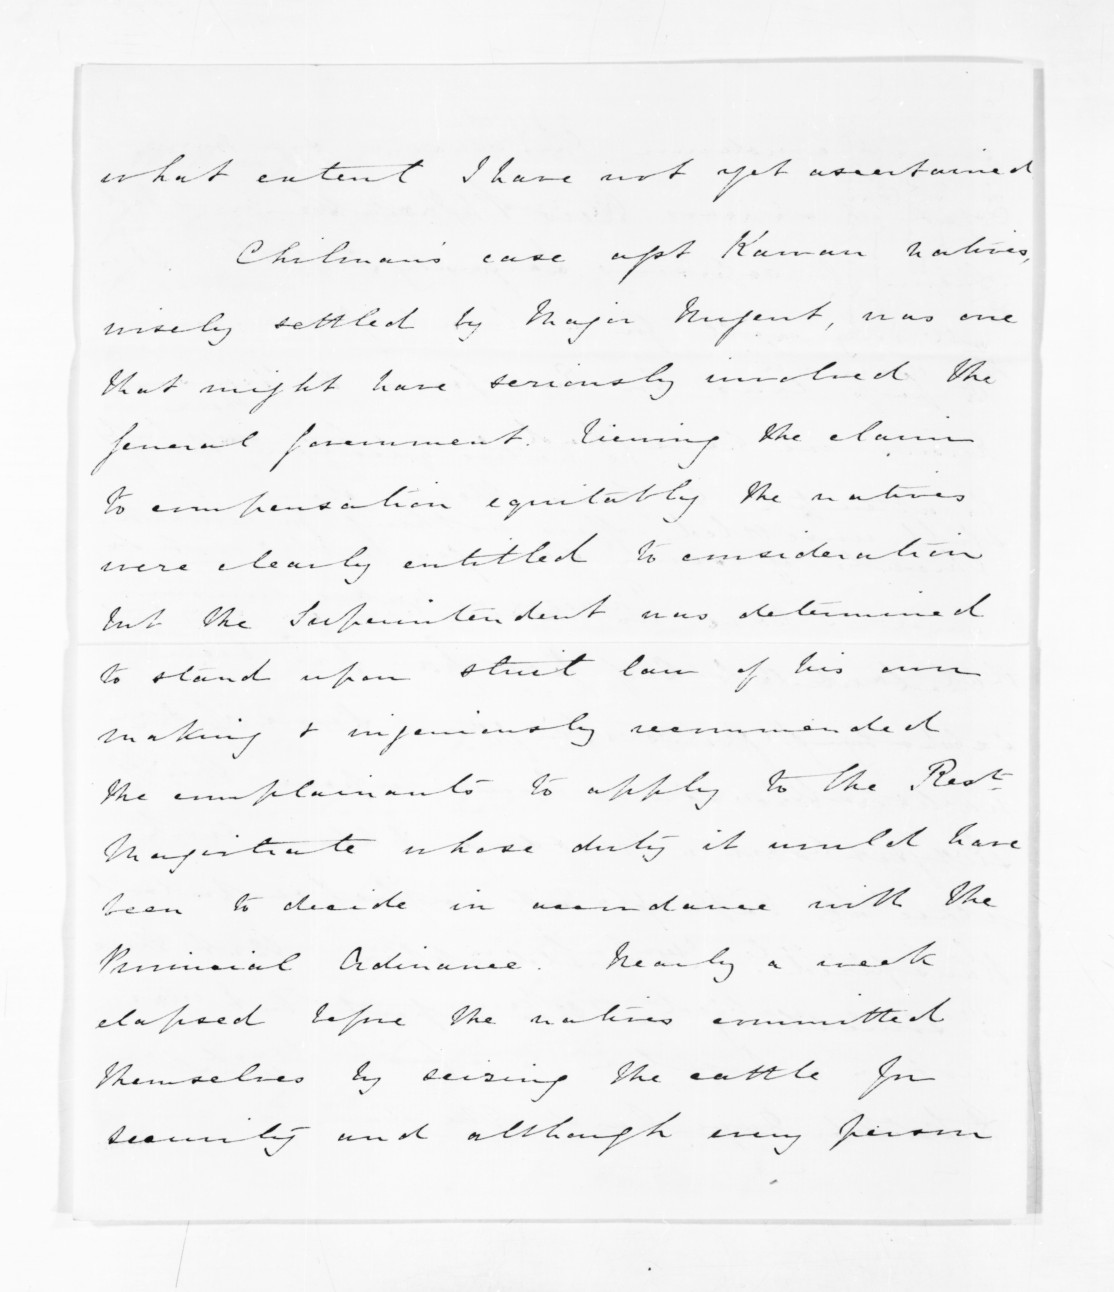 what extent I have not yet ascertained
Chilman's case agst Kawau natives,
wisely settled by Major Nugent, was one
that might have seriously involved the
General Government. Viewing the claim
to compensation equitably the natives
were clearly entitled to consideration
but the Superintendent was determined
to stand upon strict law of his own
making & ingeniously recommended
the complainants to apply to the Rest
Magistrate whose duty it would have
been to decide in accordance with the
Provincial Ordinance. Nearly a week
elapsed before the natives committed
themselves by seizing the cattle for
security and although every person